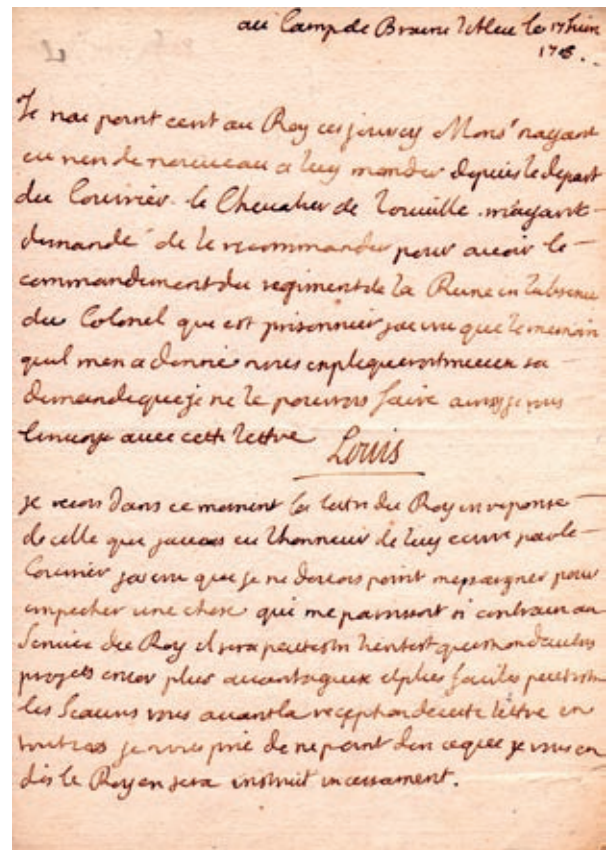 au Camp de Braine l'Aleu le 17 Juin
1708.
Je nai point ecrit au Roy ces jourcy Monsr nayant
eu rien de nouveau a luy mander depuis le depart
du Courrier. le Chevalier de Louville mayant
demandé de le recommander pour avoir le
commandement du regiment de la Reine en labsence
du Colonel qui est prisonnier jay cru que le memoire
quil men a donné vous expliqueroit mieux sa
demande que je ne le pourrois faire aussy je vous
lenvoye avec cette lettre
Louis
Je recois dans ce moment la lettre du Roy en reponse
de celle que javois eu lhonneur de luy ecrire par le
Courrier jay cru que je ne devois point mepargner pour
empecher une chose qui me paroissoit si contraire au
Service du Roy il sera peutestre bientost question dautres
projets encor plus avantageux et plus faciles peutestre
les Scaurez vous avant la reception de cette lettre en
tout cas je vous prie de ne point dire ce que je vous en
dis le Roy en sera instruit incessament.